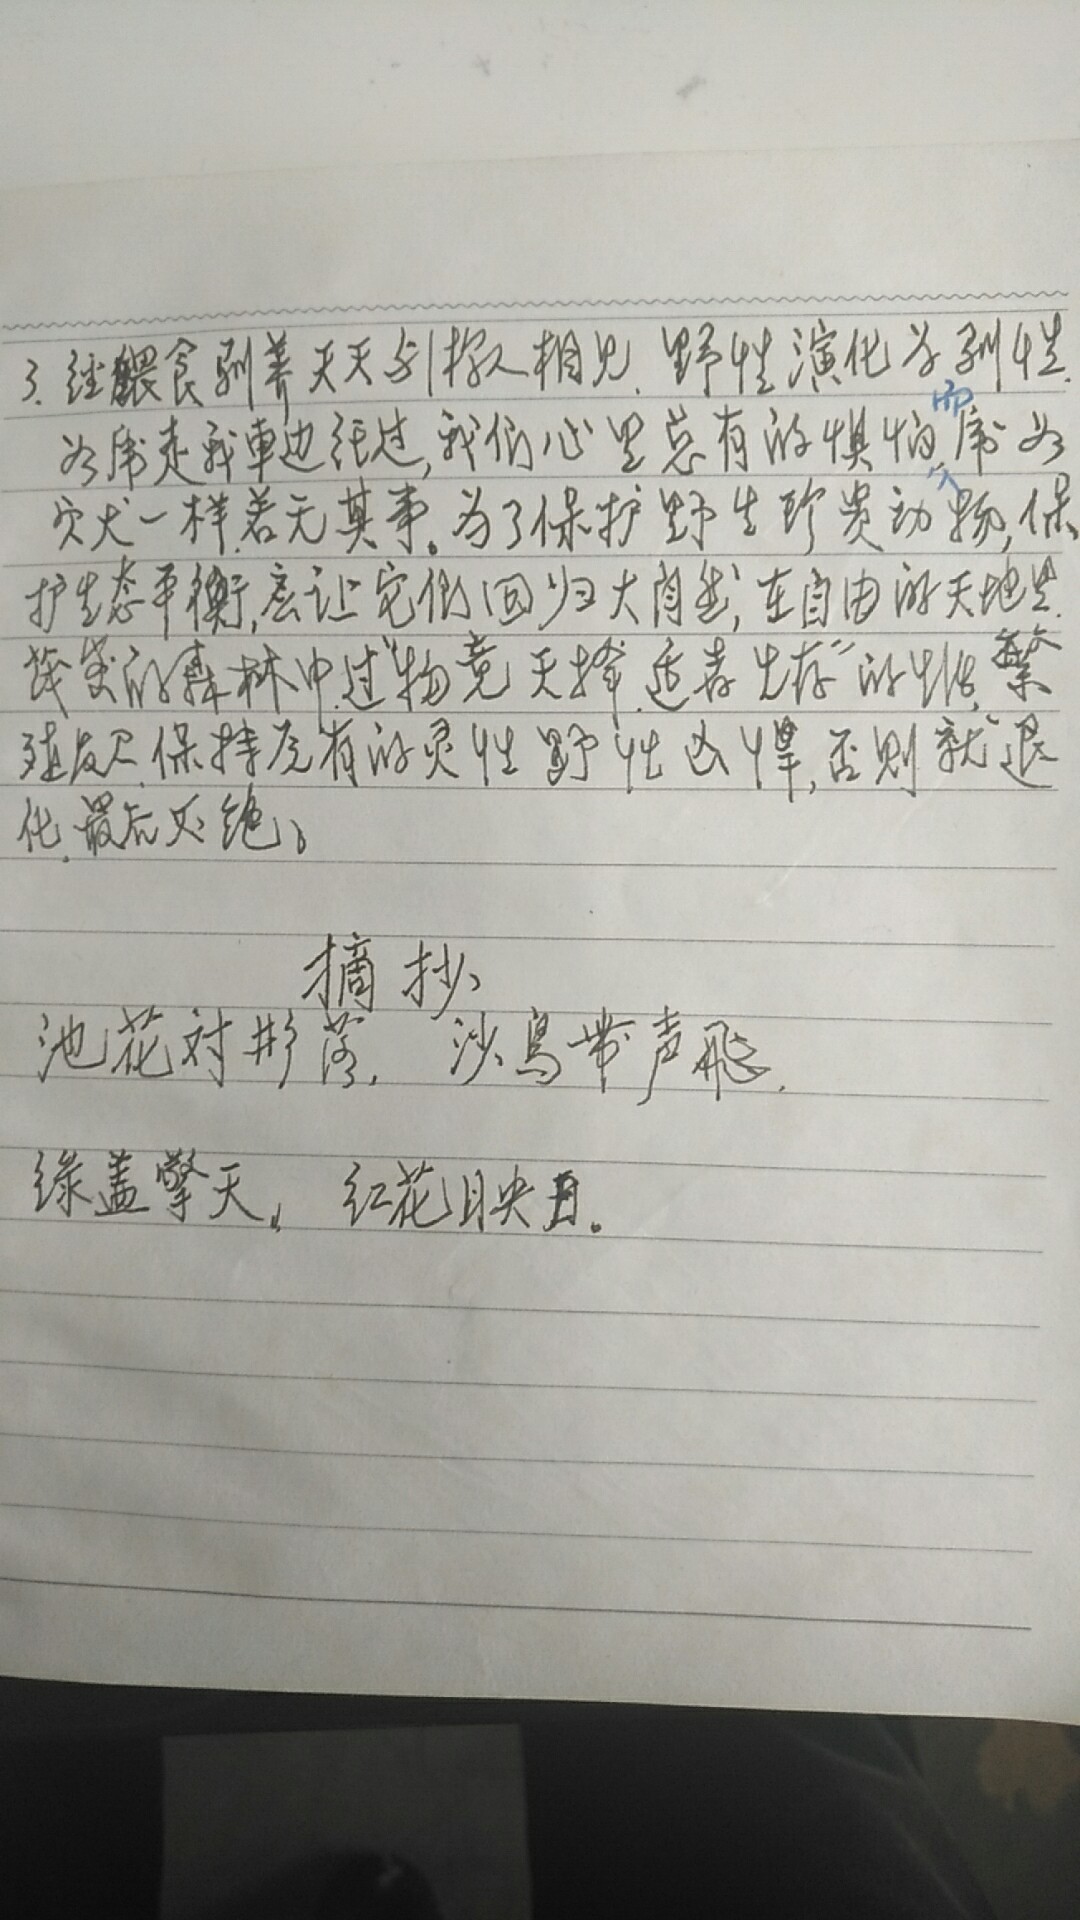 3. 经餵食驯养天天与游人相见.野性演化为驯性.
如虎走我車边经过,我们心里总有的惧怕,而虎如
穴犬一样.若无其事。为了保护野生珍贵动物,保
护生态平衡,应让它们回归大自然,在自由的天地里.
茂密的森林中.过"物竞天择.适者生存"的生活,繁
殖后代.保持原有的灵性野性凶悍,否则就"退
化.最后灭绝。
摘抄、
池花対影落. 沙鳥带声飛.
绿盖擎天, 红花映日。